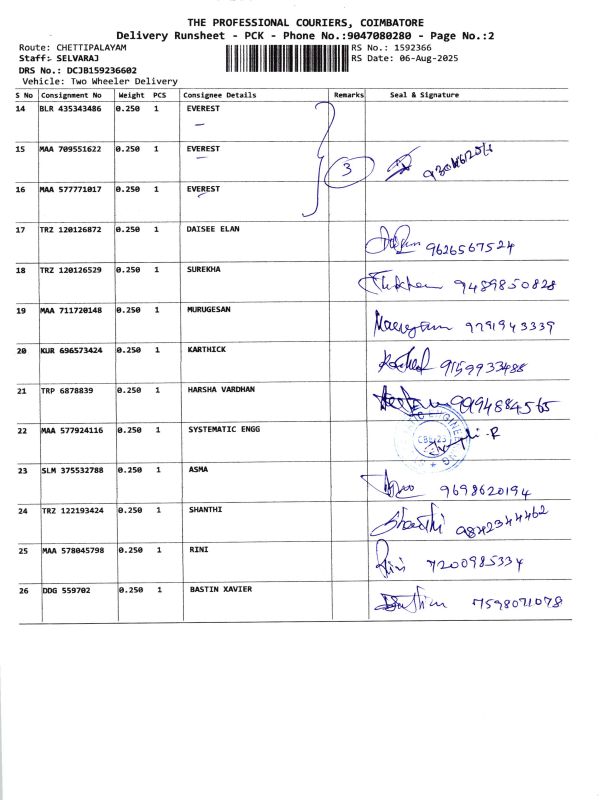 THE PROFESSIONAL COURIERS, COIMBATORE
Delivery Runsheet - PCK - Phone No.:9047080280 - Page No.:2
Route: CHETTIPALAYAM RS No.: 1592366
Staff: SELVARAJ RS Date: 06-Aug-2025
DRS No.: DCJB159236602
Vehicle: Two Wheeler Delivery
S No Consignment No Weight PCS Consignee Details Remarks Seal & Signature
14 BLR 435343486 0.250 1 EVEREST
15 MAA 709551622 0.250 1 EVEREST 3
16 MAA 577771017 0.250 1 EVEREST
17 TRZ 120126872 0.250 1 DAISEE ELAN 9626567524
18 TRZ 120126529 0.250 1 SUREKHA 9489850828
19 MAA 711720148 0.250 1 MURUGESAN 9791943339
20 KUR 696573424 0.250 1 KARTHICK 9159933488
21 TRP 6878839 0.250 1 HARSHA VARDHAN 9994884565
22 MAA 577924116 0.250 1 SYSTEMATIC ENGG
23 SLM 375532788 0.250 1 ASMA 9698620194
24 TRZ 122193424 0.250 1 SHANTHI Shanthi 9842344462
25 MAA 578045798 0.250 1 RINI Rini 7200985334
26 DDG 559702 0.250 1 BASTIN XAVIER 7598071078